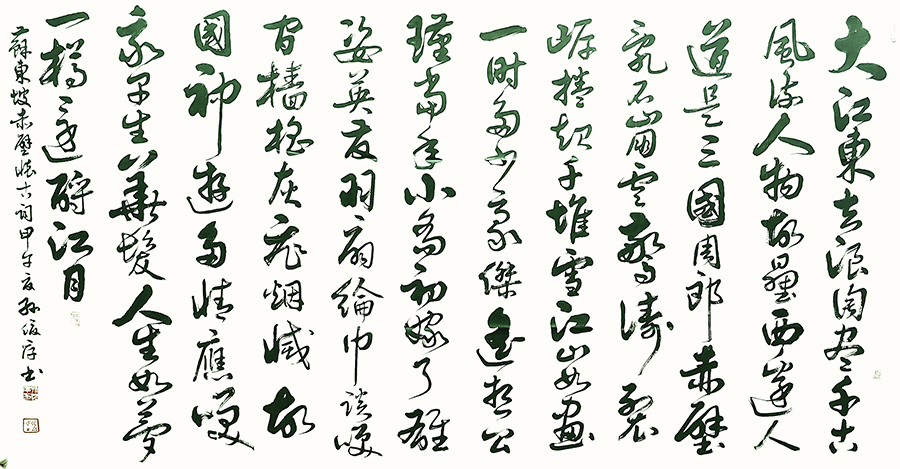 大江東去浪淘盡千古
風流人物故壘西邊人
道是三國周郎赤壁
亂石崩雲驚濤裂
岸捲起千堆雪江山如畫
一時多少豪傑遙想公
瑾當年小喬初嫁了雄
姿英發羽扇綸巾談笑
間檣櫓灰飛烟滅故
國神遊多情應笑
我早生華髮人生如夢
一樽還酹江月
蘇東坡赤壁懷古詞甲午夏孫書